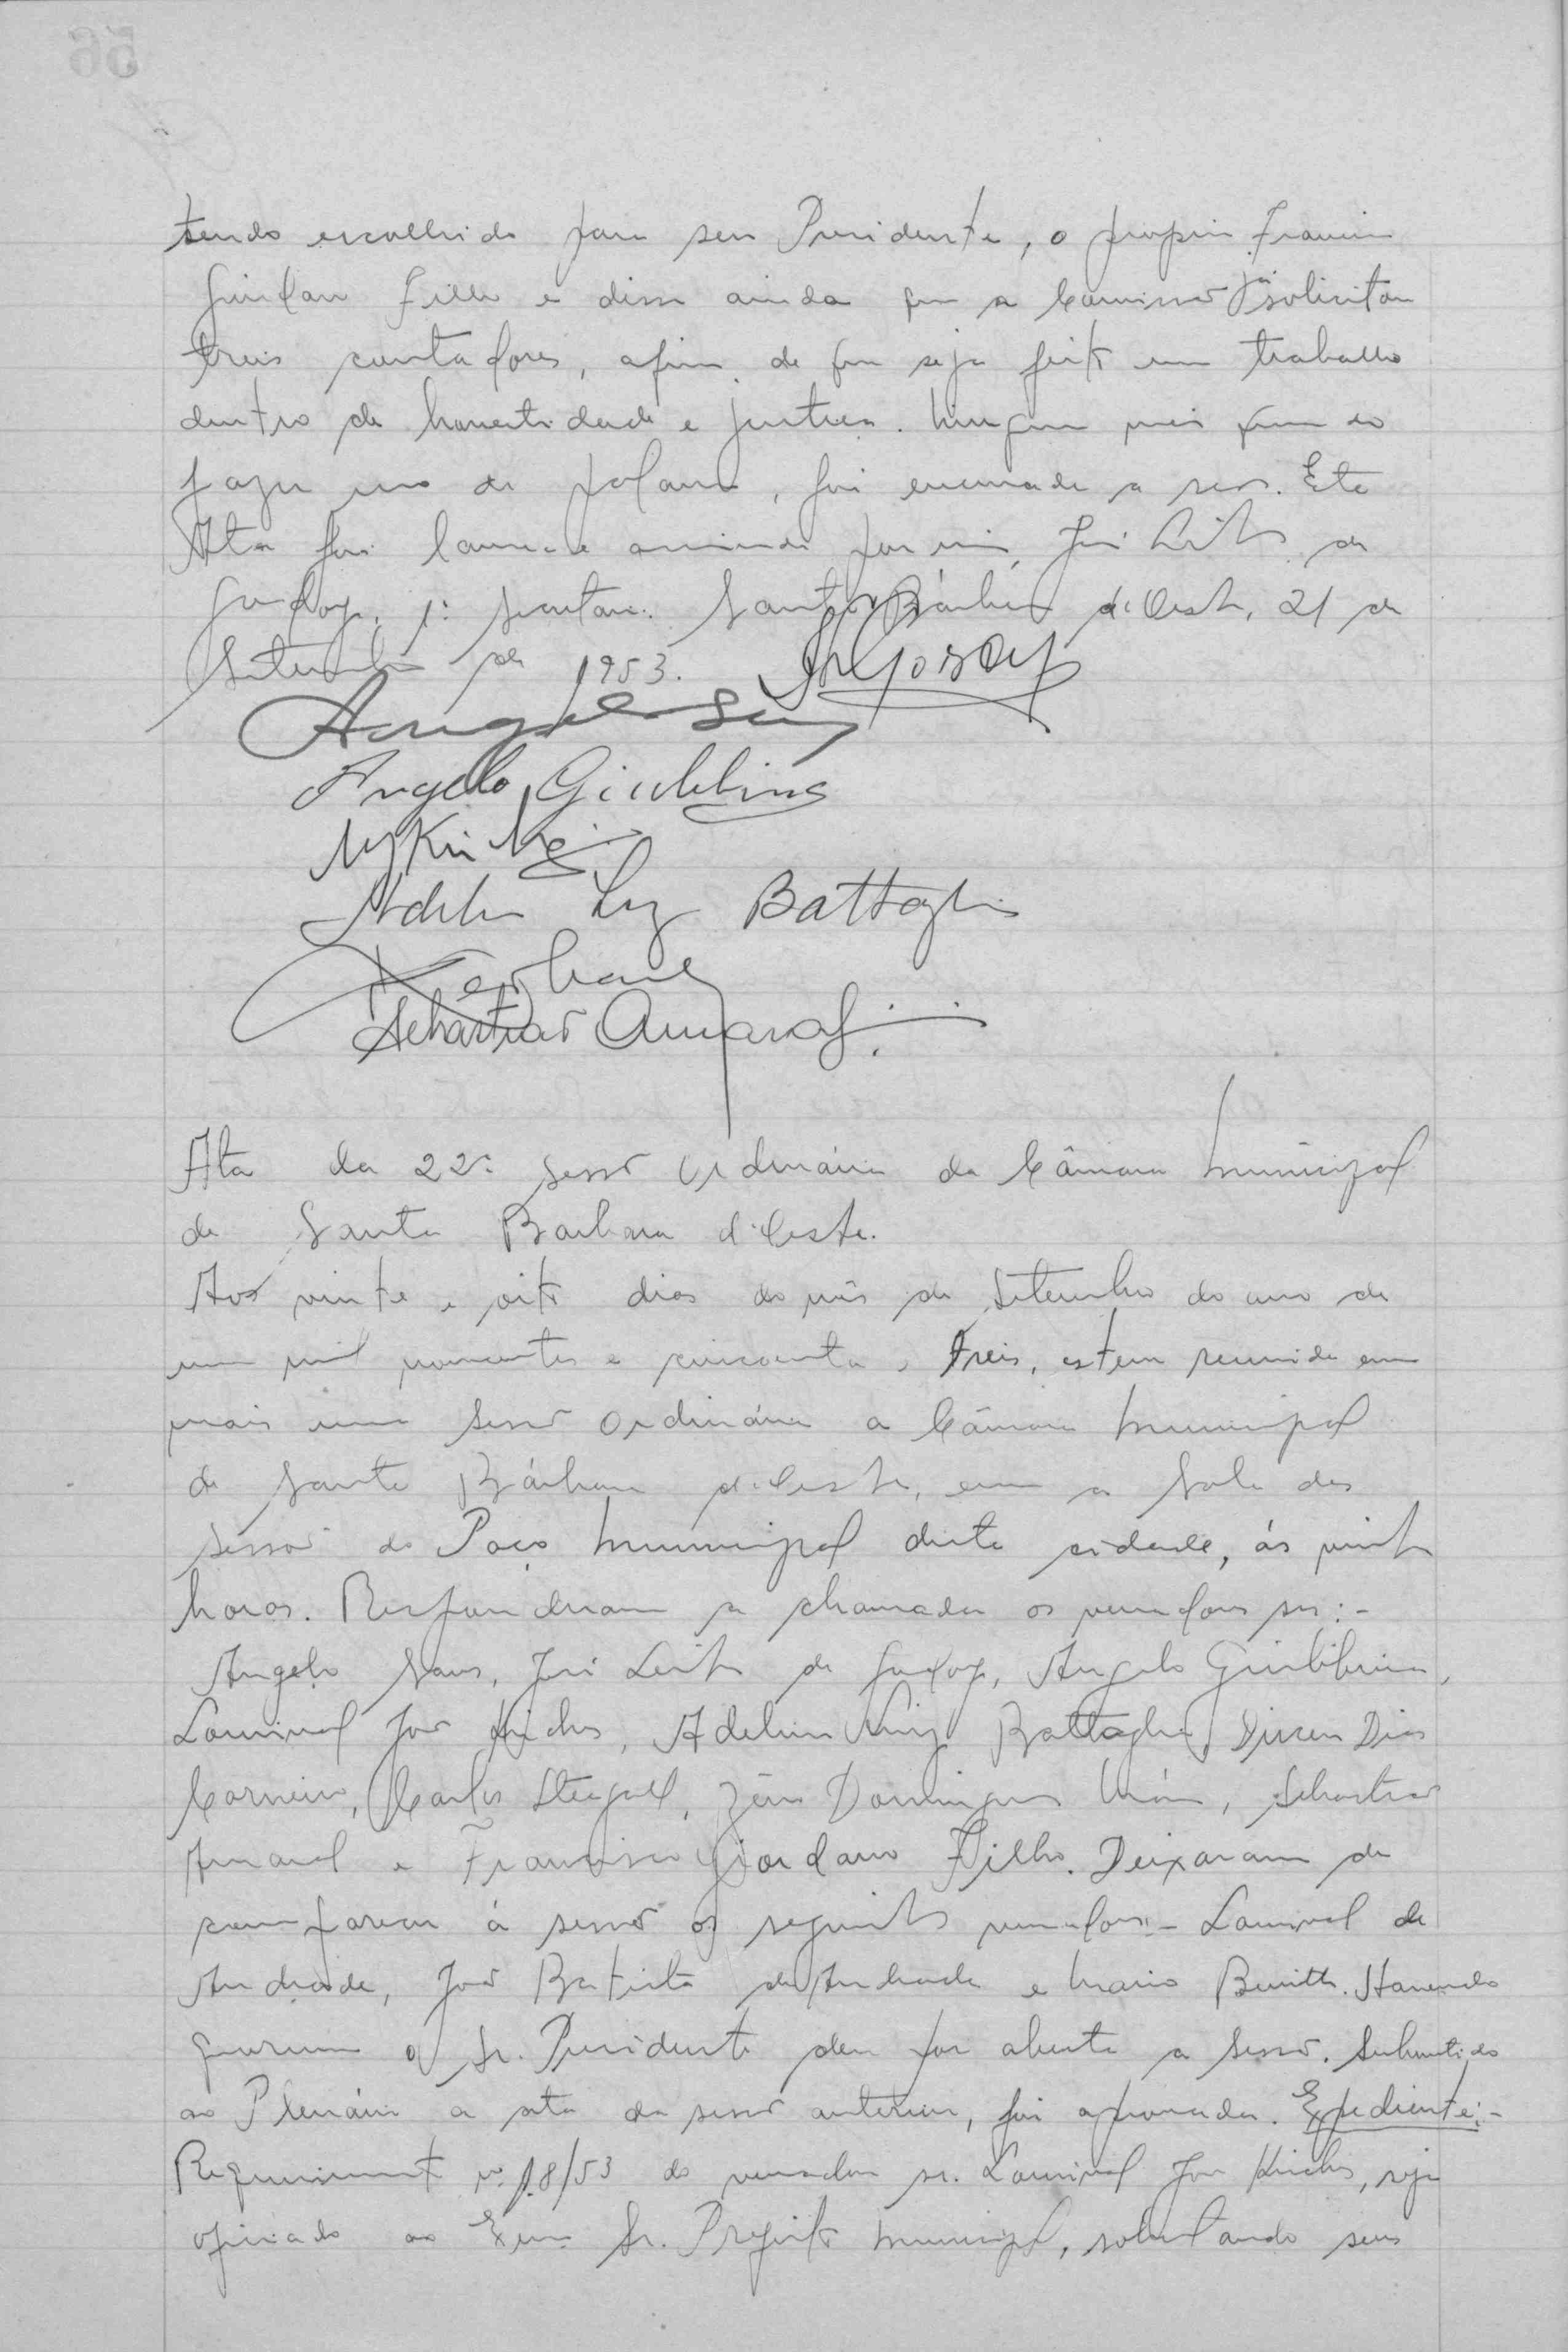 tendo escolhido para seu Presidente, o proprio Francisco
Giordano Filho e disse ainda que a Comissão já solicitou
treis contadores, afim de que seja feito um trabalho
dentro da honestidade e justiça. Ninguem mais querendo
fazer uso da palavra, foi encerrada a sessão. Esta
Ata foi lavrada e assinada por mim, José Leite de
Godoy, 1º Secretario. Santa Bárbara d'Oeste, 21 de
Setembro de 1953. JLGodoy
Angelo Sans
Angelo Giubbina
LJKirche
Adelino Luiz Battaglia
Sebastião Amaral
Ata da 22ª sessão Ordinária da Câmara Municipal
de Santa Barbara d'Oeste.
Aos vinte e oito dias do mês de Setembro do ano de
um mil novecentos e cincoenta e treis, esteve reunida em
mais uma sessão Ordinária a Câmara Municipal
de Santa Bárbara d'Oeste, em a Sala das
sessões do Paço Municipal desta cidade, ás vinte
horas. Responderam a chamada os vereadores srs:-
Angelo Sans, José Leite de Godoy, Angelo Giubbina,
Lourival José Kirche, Adelino Luiz Battaglia, Dirceu Dias
Carneiro, Carlos Steagall, Domingues, Sebastião
Amaral e Francisco Giordano Filho. Deixaram de
comparecer á sessão os seguintes vereadores:- Lourival de
Andrade, João Batista de Andrade e Mario. Havendo
quorum o Sr. Presidente deu por aberta a sessão. Submetido
ao Plenário a ata da sessão anterior, foi aprovada. Expediente:-
Requerimento nº 18/53 do vereador sr. Lourival José Kirche, seja
oficiado ao Exmo Sr. Prefeito Municipal, solicitando seus